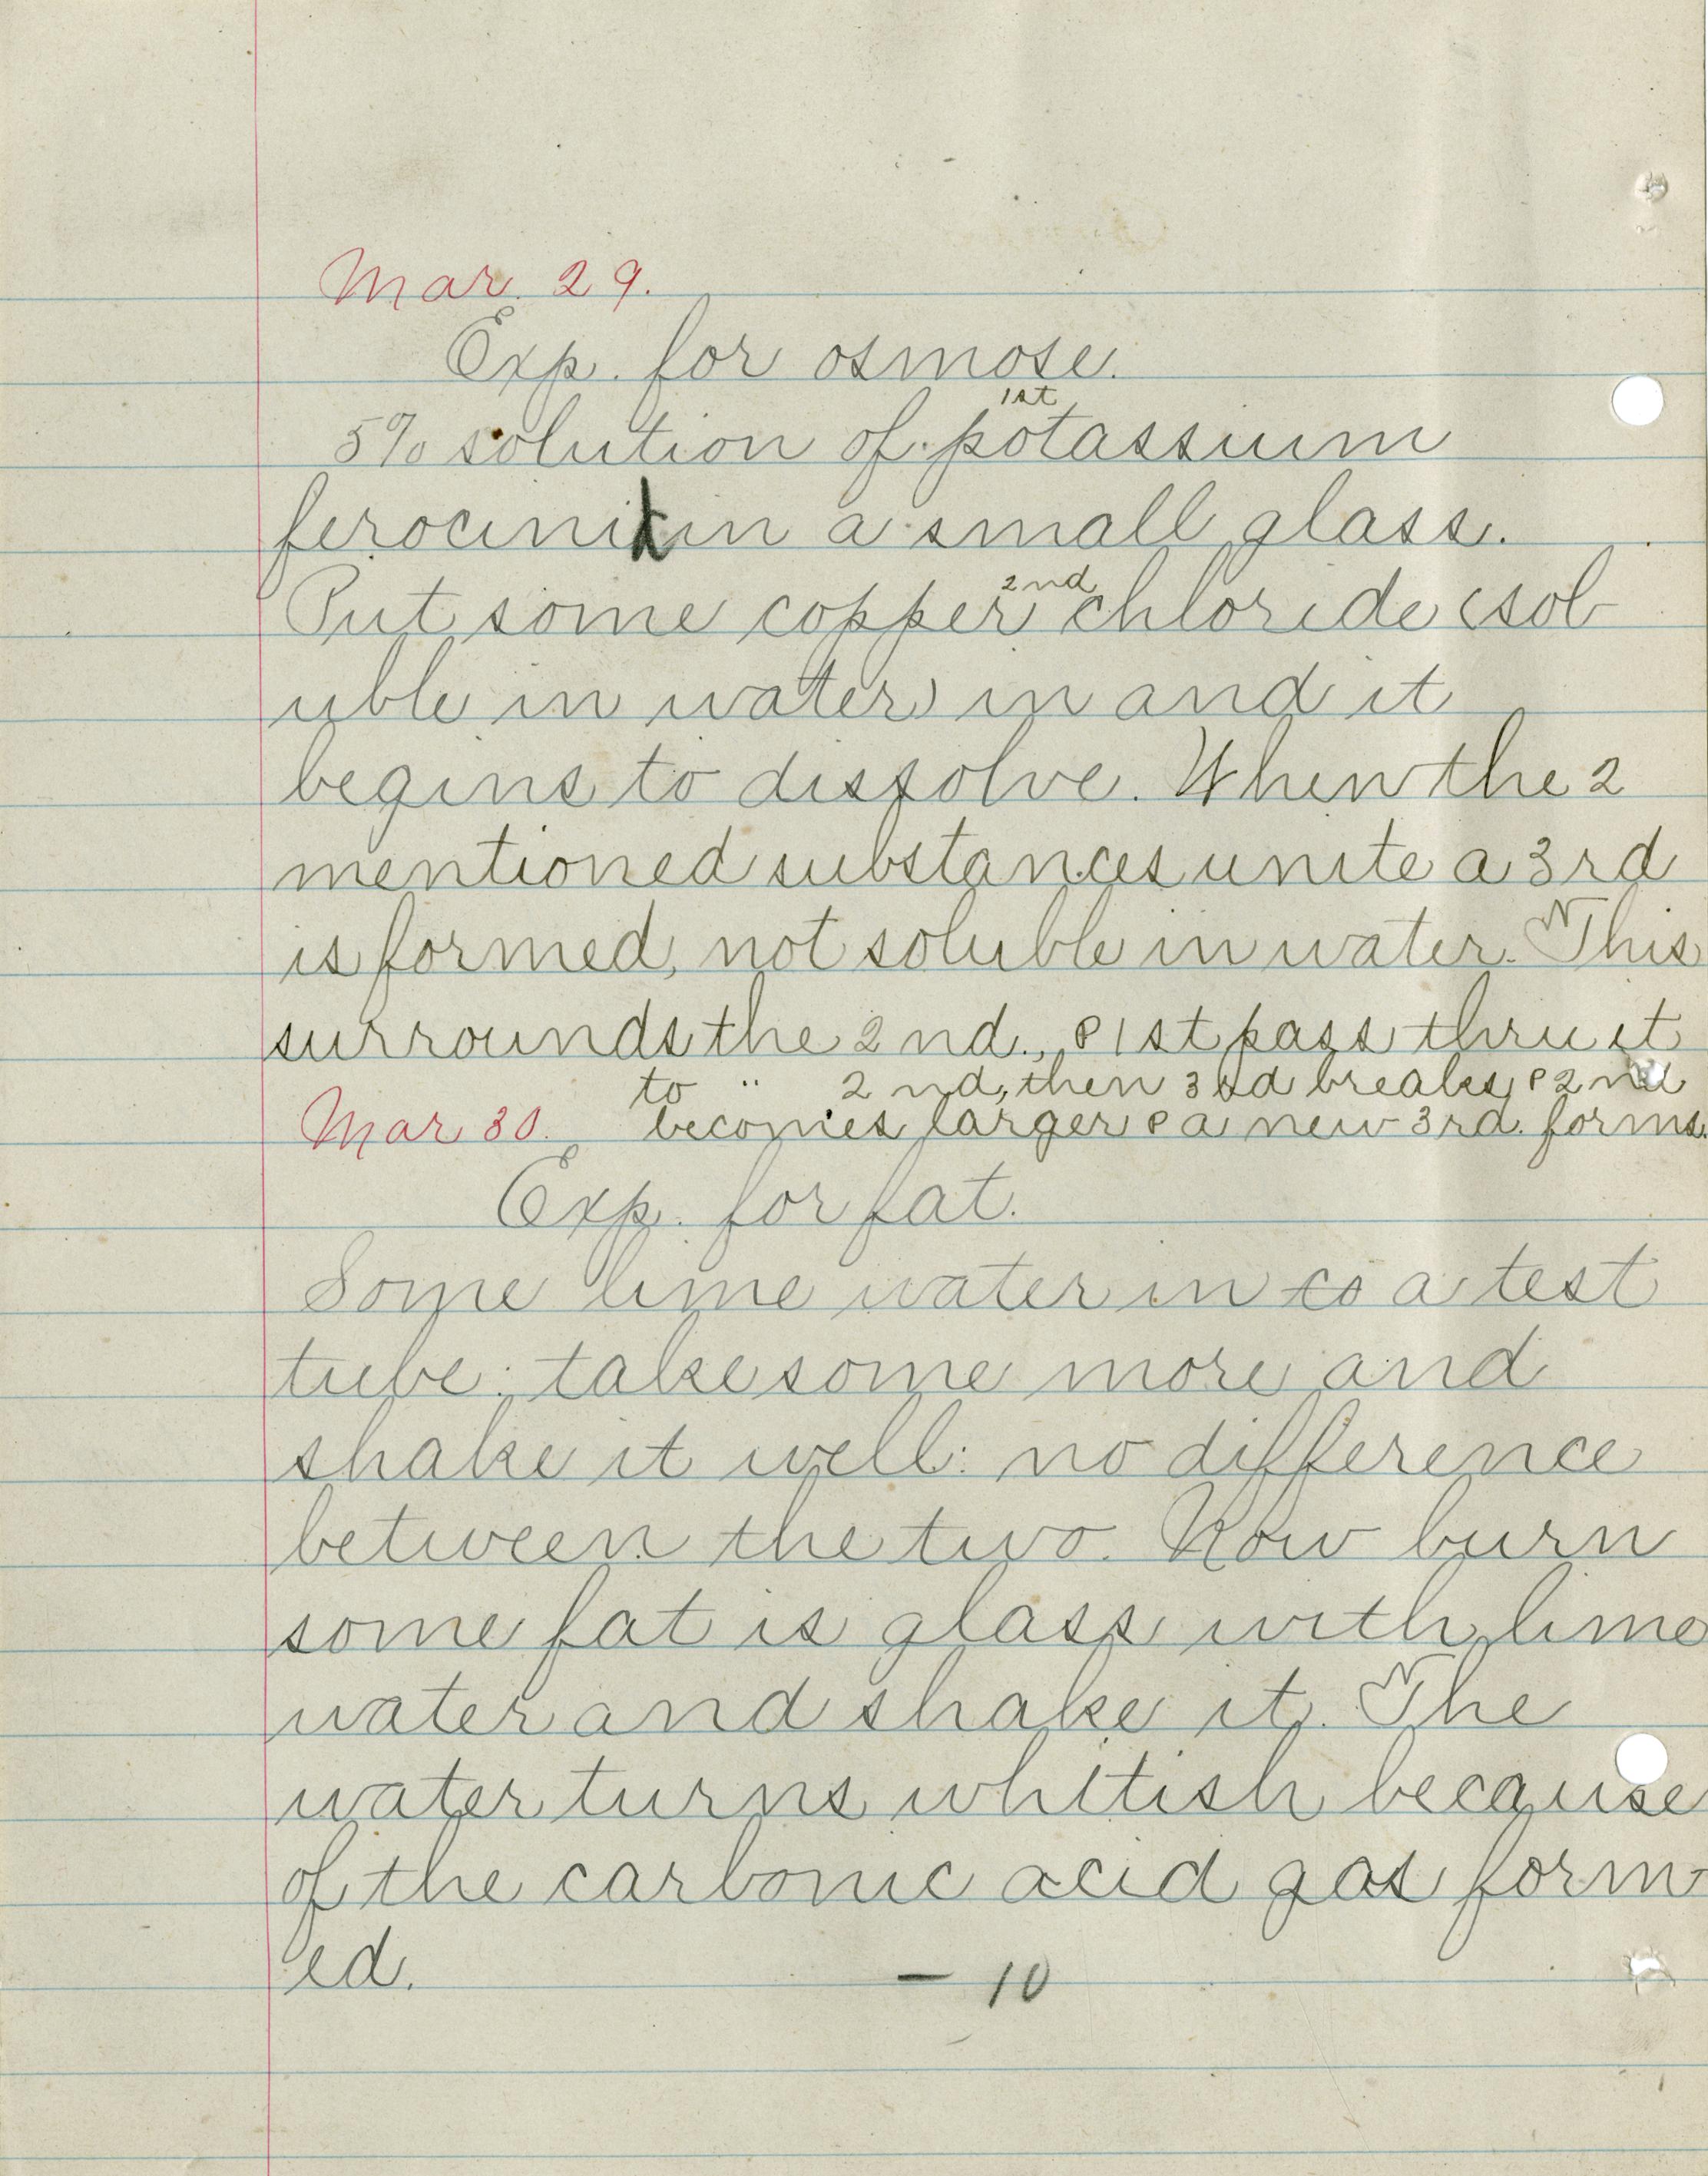 Mar. 29.
Exp. for osmose.
1st
5% solution of potassium
ferocini in a small glass.
2nd
Put some copper chloride (sol
uble in water) in and it
begins to dissolve. When the 2
mentioned substances unite a 3rd
is formed, not soluble in water. This
surrounds the 2nd., 1st pass thru it
to " 2nd, then 3rd breaks, 2nd
Mar 30. becomes larger a new 3rd. forms.
Exp. for fat.
Some lime water in co a test
tube; take some more and
shake it well: no difference
between the two. Now burn
some fat is glass with lime
water and shake it. The
water turns whitish because
of the carbonic acid gas form
ed.
— 10